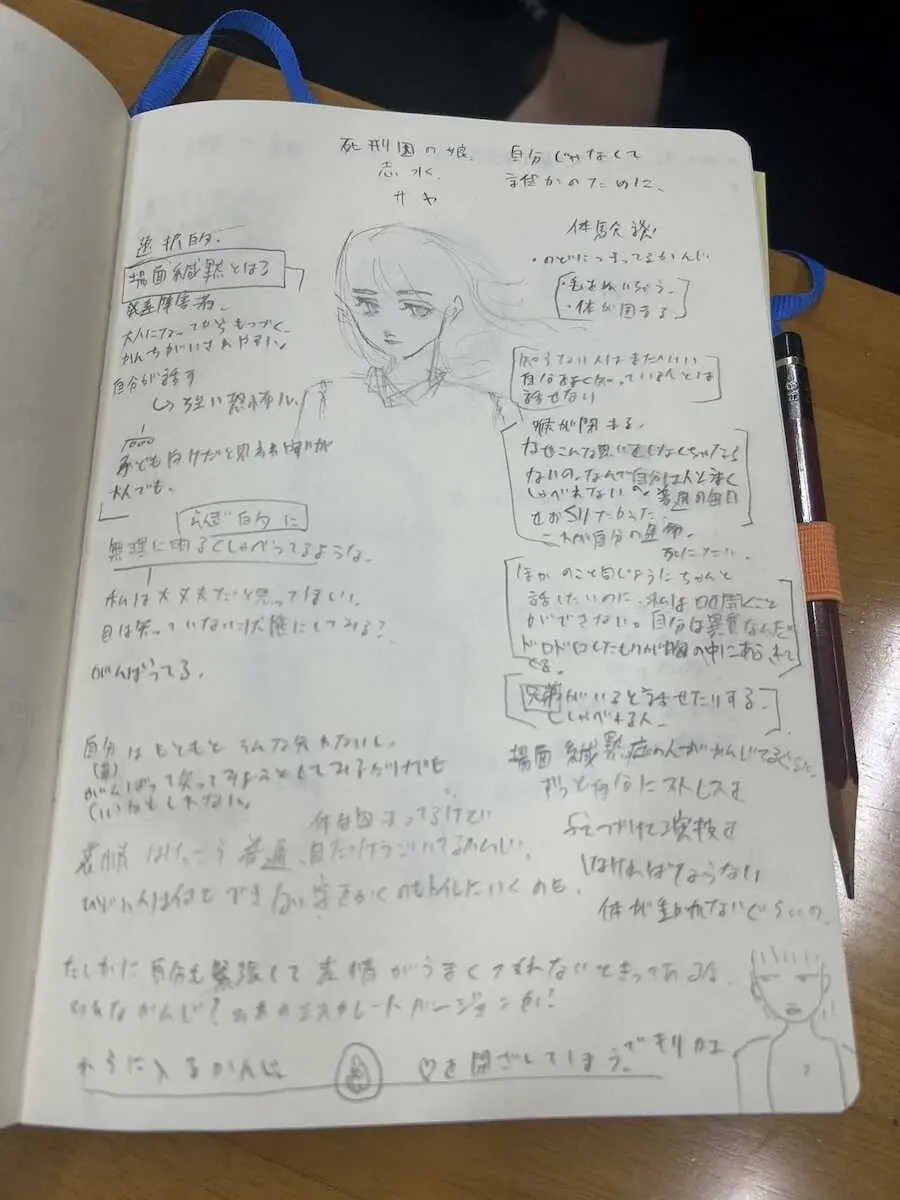 死刑囚の娘.
志水.
サヤ
自分じゃなくて
誰かのために、
選択的.
場面緘黙とは?
発達障害者.
大人になってからもつづく
かんちがいされやすい
自分が話す
↳ 強い恐怖心.
子ども向けだと思
大人でも.
体験談
・のどにつまってるかんじ
・体が固まる
知らない人はまだいい
自分をよく知っている人とは
話せない
喉が閉まる.
なぜこんな思いをしなくちゃなら
ないの.なんで自分は人と上手く
しゃべれないの.普通の毎日
をおくりたかった.
これが自分の運命.
死にたい.
ほかのこと同じようにちゃんと
話したいのに、私は口を開くこと
ができない。自分は異質なんだ
ドロドロしたものが胸の中にあふれて
くる.
兄弟がいると話せたりする.
としゃべれる人.
無理に明るくしゃべってるような.
私は大丈夫だと思ってほしい.
目は笑っていない状態にしてみる?
がんばってる.
自分はもともとそんな笑わないし.
がんばって笑ってみようとしてみるだけでも
いいかもしれない.
場面緘黙症の人がかんじてるぐらい.
ずっと自分にストレスを
あたえつづけて演技を
しなければならない
体が動かないぐらいの.
体は固まってるけど
表情はけっこう普通、目だけうごいてるかんじ.
ひどい人は何もできない字をかくのもトイレにいくのも.
たしかに自分も緊張して表情がうまくつくれないときってあるな.
そんなかんじ?それのエスカレートバージョン的?
からに入るかんじ
♡を閉ざしてしまう.